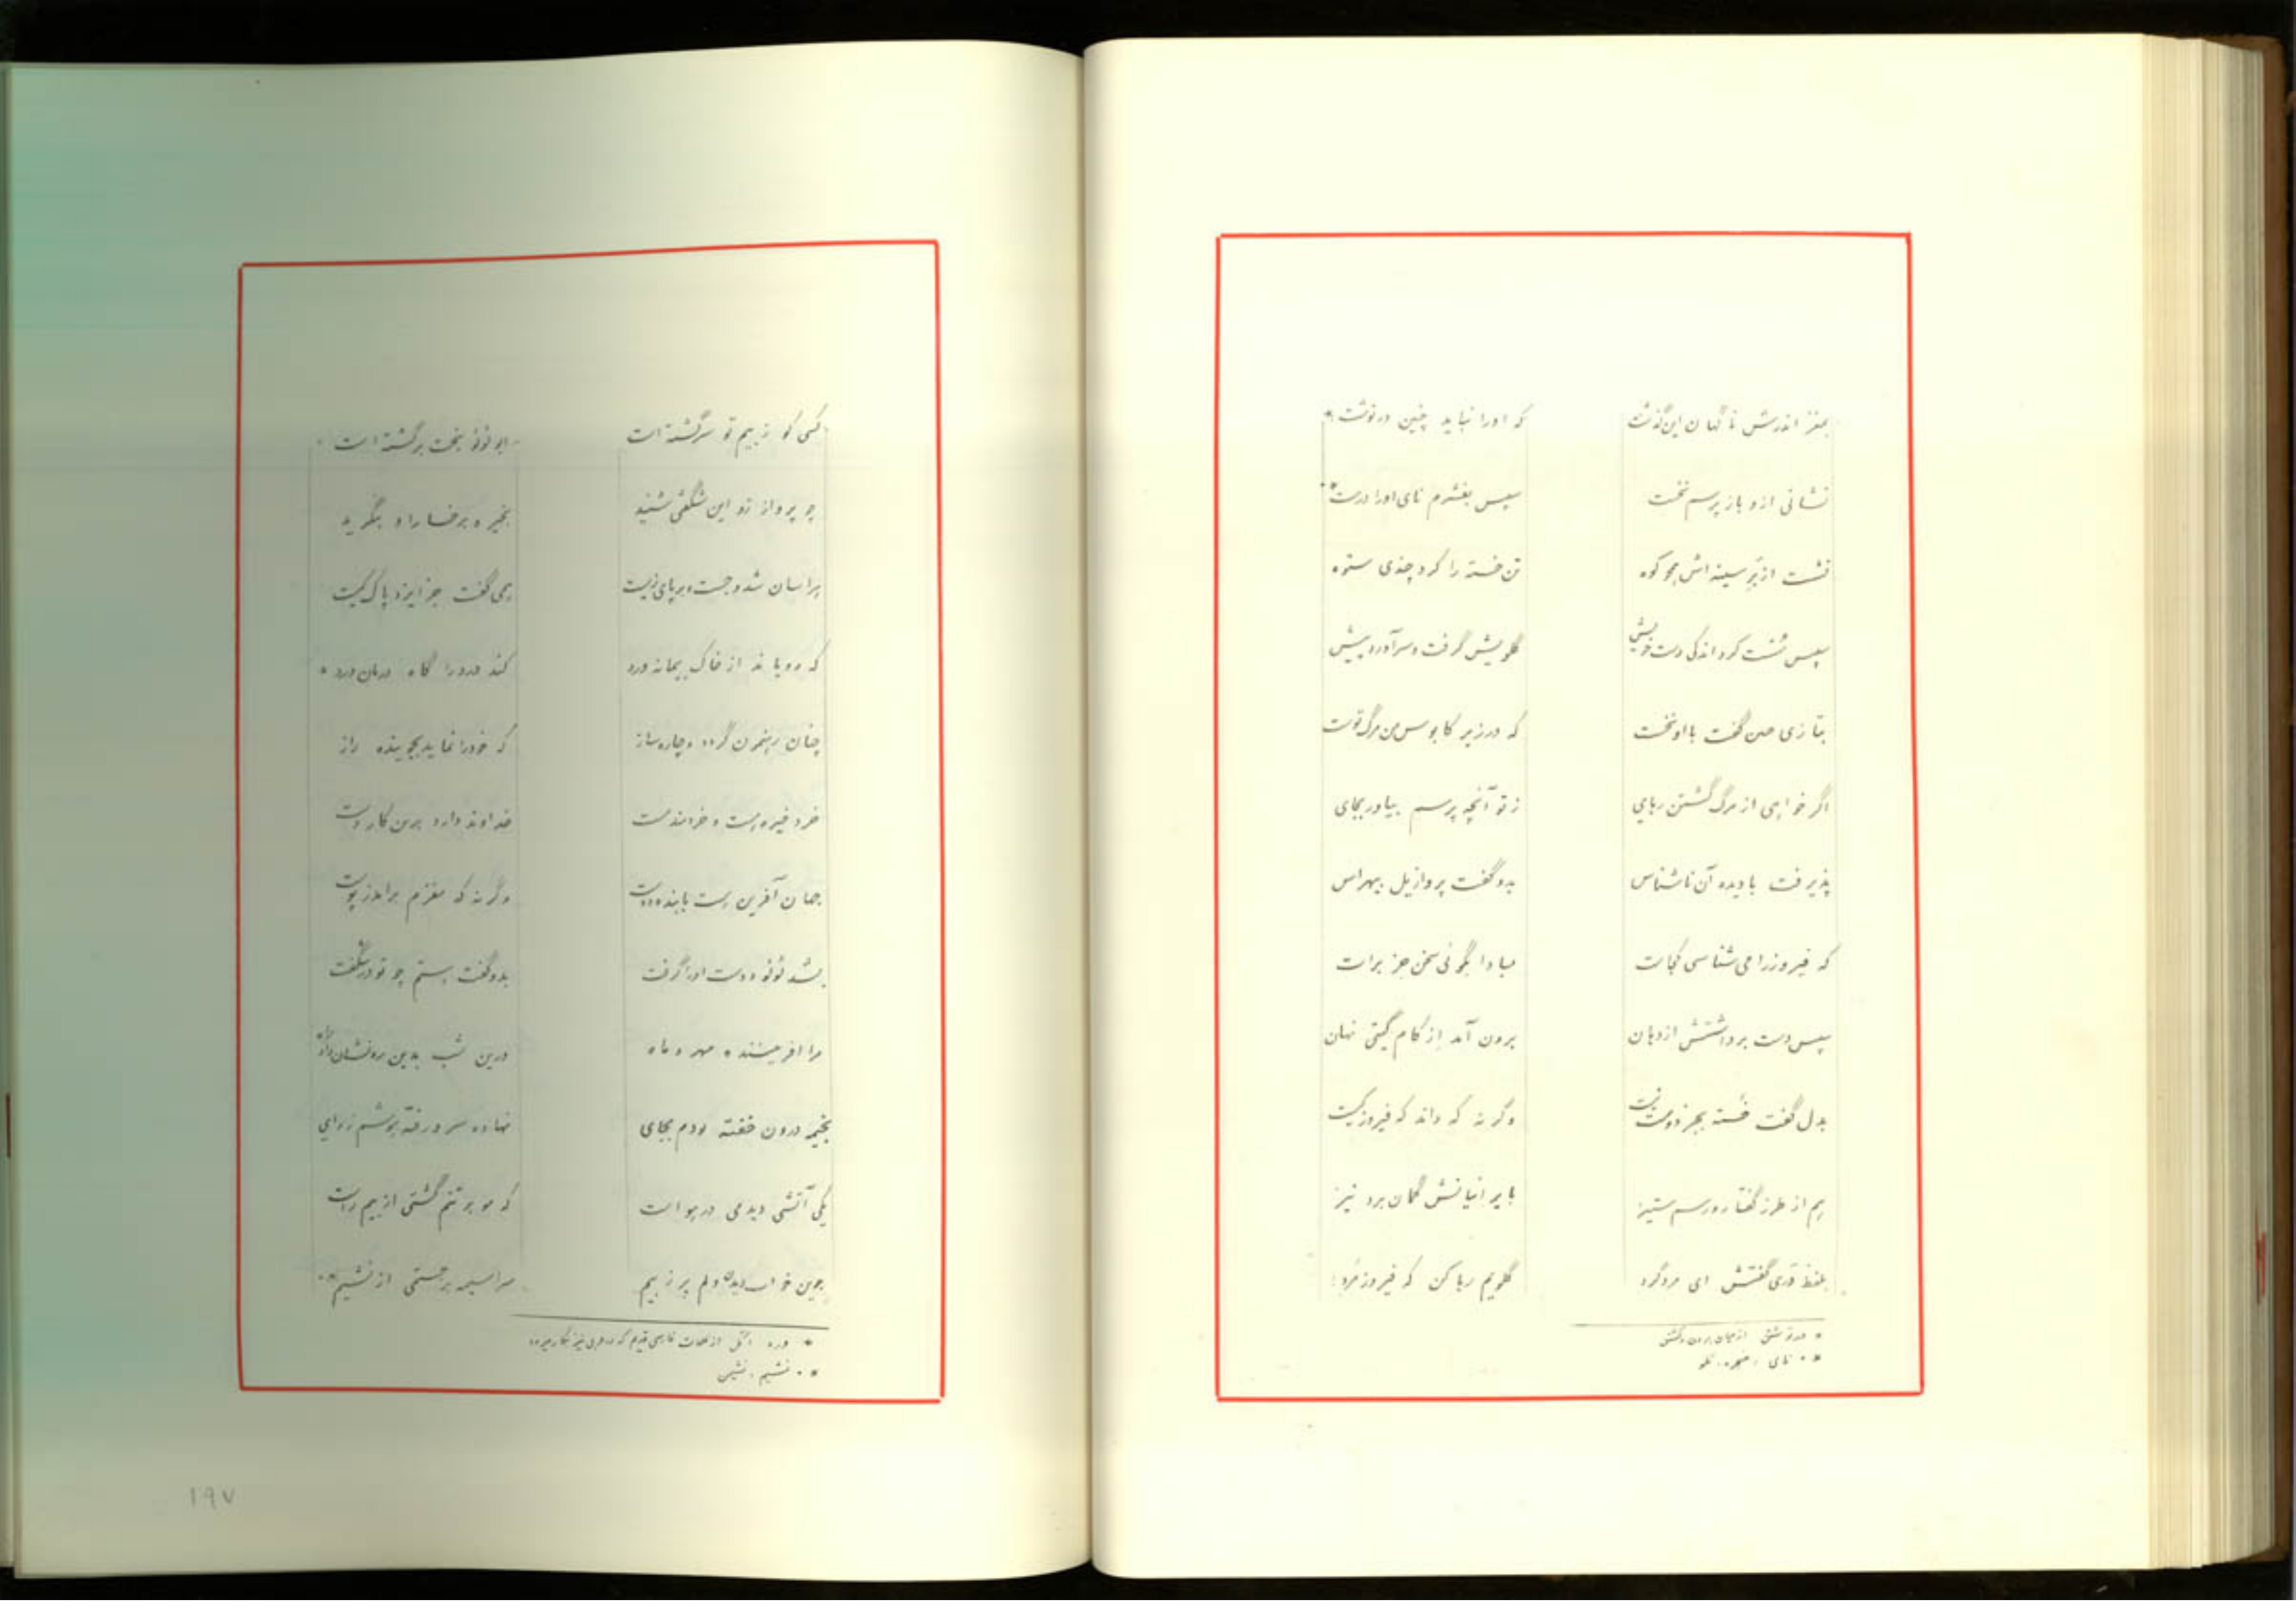 بمغز اندرش ناگهان این گذشت که او را نباید چنین درنوشت*
نشانی ازو باز پرسم نخست سپس بفشرم نای او را درست**
نشست از بر سینه اش همچو کوه تن خسته را کرد چندی ستوه
سپس سُست کرد اندکی دست خویش گلویش گرفت و سر آورد پیش
بتازی حسن گفت با او نخست که در زیر کابوس من مرگ تست
اگر خواهی از مرگ گشتن رهای ز تو آنچه پرسم بیاور بجای
پذیرفت با دیده آن ناشناس بدو گفت پر وازیل بیهراس
که فیروز را می شناسی کجاست مبادا بگوئی سخن جز براست
سپس دست برداشتش از دهان برون آمد از کام گیتی نهان
بدل گفت خسته بجز دوست نیست وگرنه که داند که فیروز کیست
هم از طرز گفتار و رسم ستیز بایرانیانش گمان برد نیز
بلفظ دری گفتش ای مرد گرد گلویم رها کن که فیروز مُرد
* درنوشتن از میان بردن و کشتن
** نای : حنجره، گلو
کسی کو ز بیم تو سرگشته است ابولؤلؤ بخت برگشته است
چو پرواز زو این شگفتی شنید بخیره برخسار او بنگرید
هراسان شد و جست و بر پای زیست همی گفت جز ایزد پاک کیست
که رویاند از خاک بیمانه ورد کند درد را گاه درمان درد*
چنان رهنمون گردد و چاره ساز که خود را نماید بجوینده راز
خرد خیره است و خردمند مست خداوند دارد برین کار دست
جهان آفرین است با بنده دوست وگرنه که مغزم برآرد ز پوست
بشد لؤلؤ و دست او را گرفت بدو گفت هستم چو تو در شگفت
مرا آفریننده مهر و ماه درین شب بدین ره نشان داد راه
بخیمه درون خفته بودم بجای نهاده سر و رفته هوشم ز رای
یکی آتشی دیدمی در هواست که مو بر تنم گشتی از بیم راست
چوین خواب دیدم دلم پر ز بیم سراسیمه برجستمی از نشیم**
* ورد : گل از لغات فارسی قدیم که در عربی نیز بکار میرود
** نشیم : نشیمن
۱۹۷